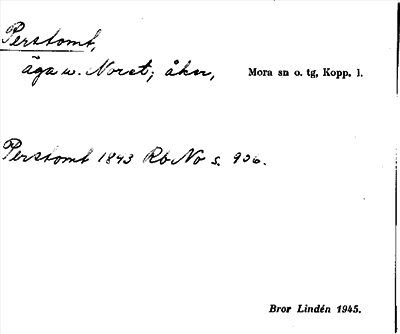 Perstomt,
äga u. Noret; åker, Mora sn o. tg, Kopp. l.
Perstomt 1843 Rb No s. 936.
Bror Lindén 1945.